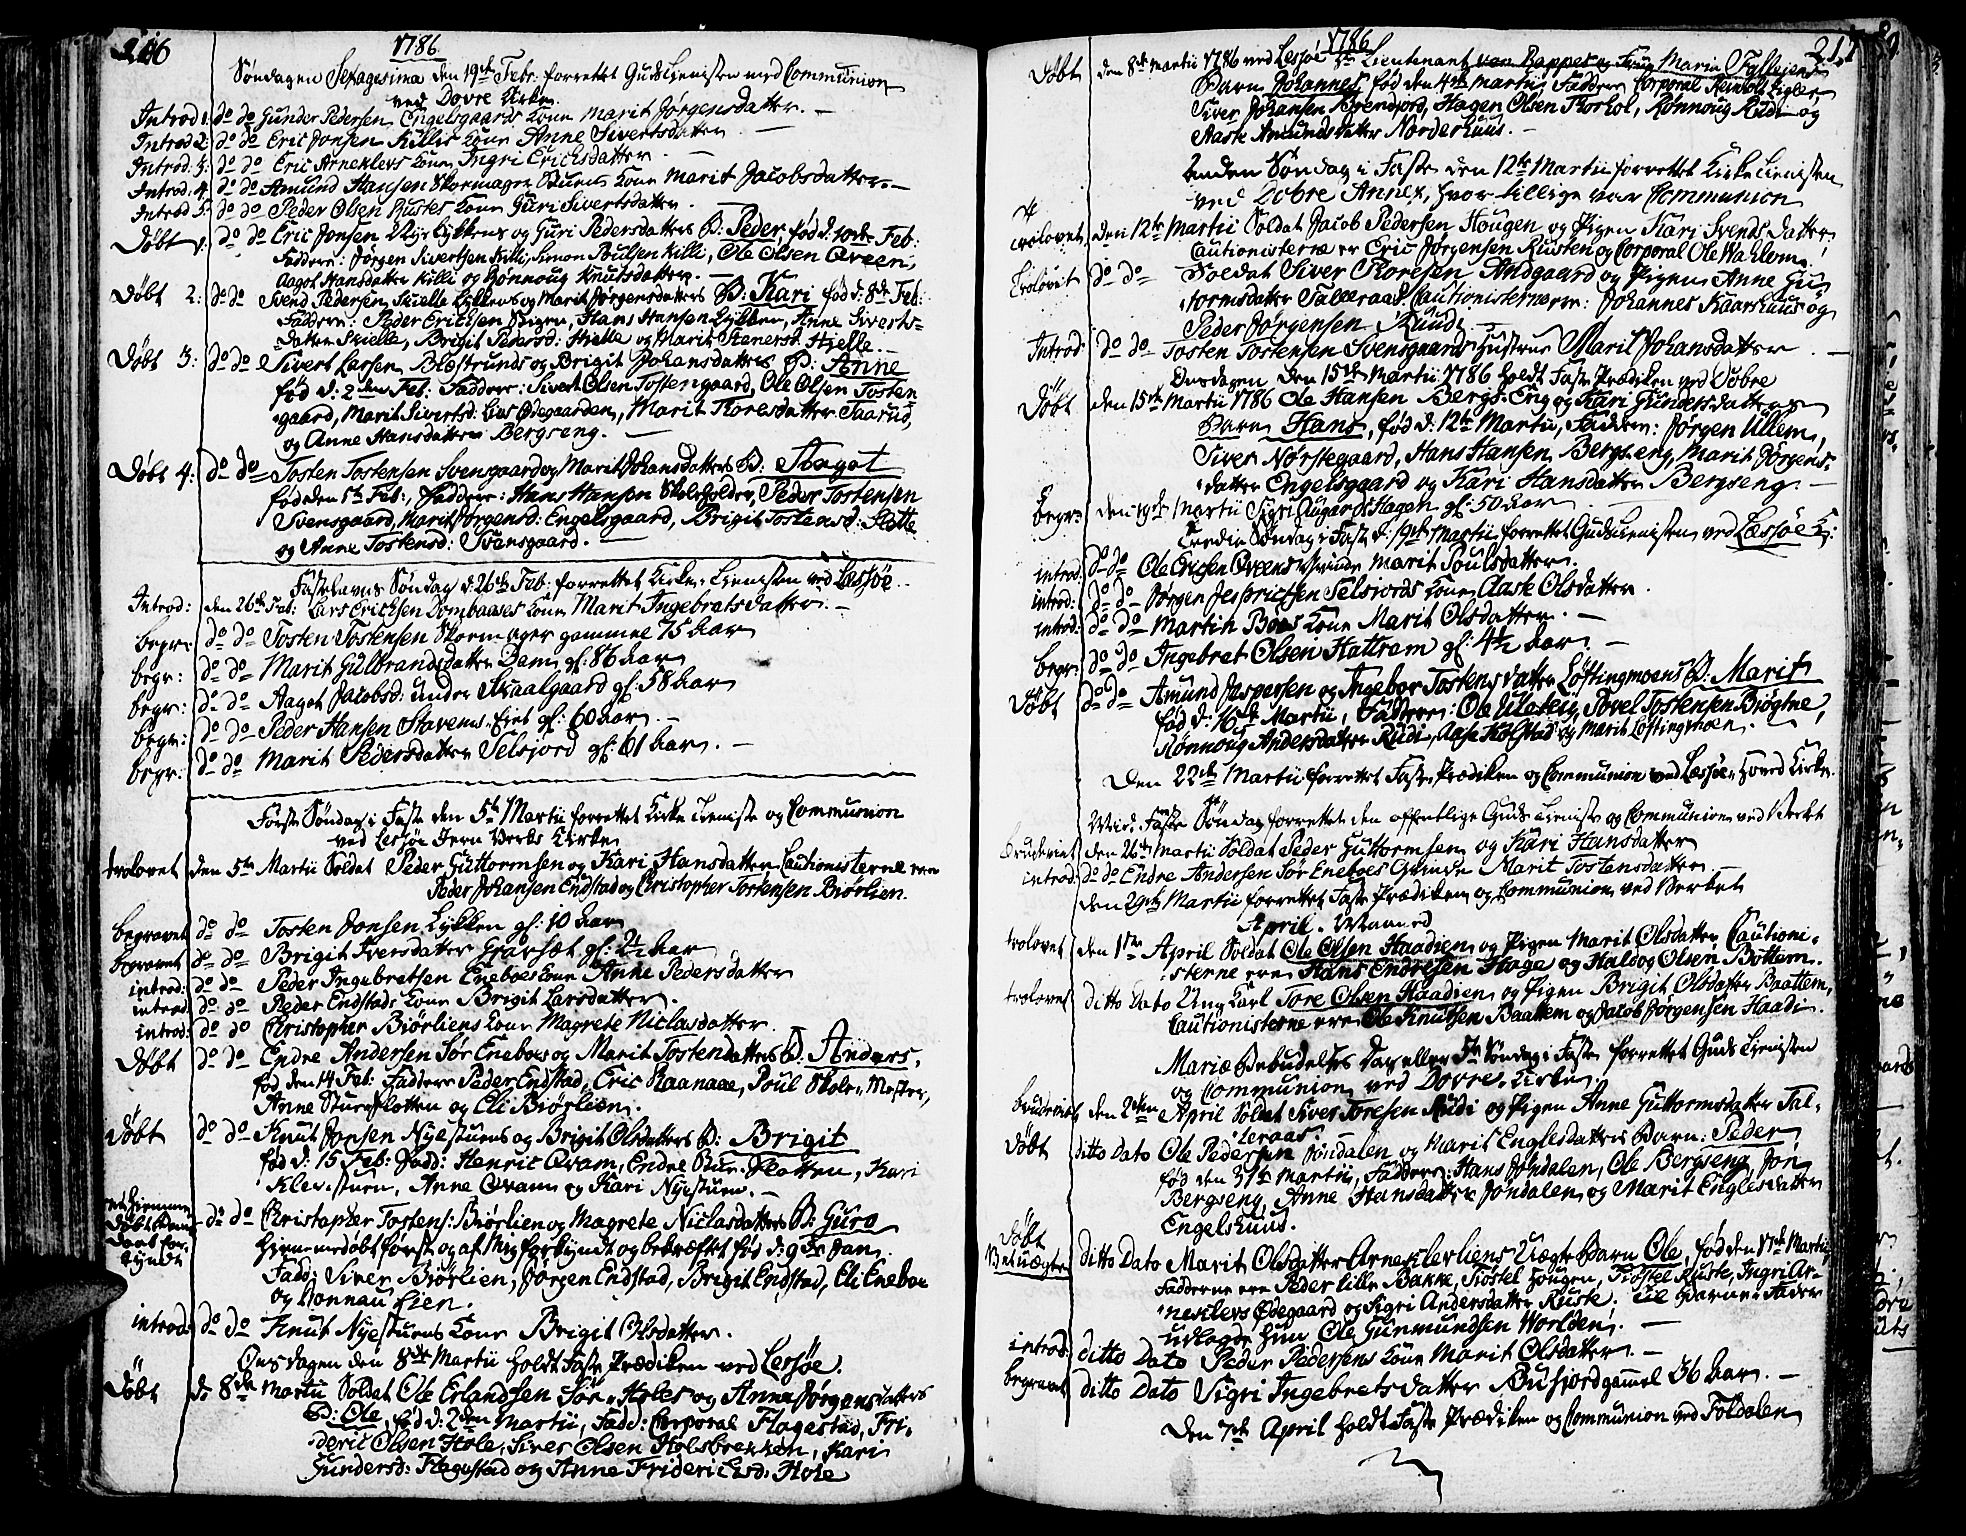 216
1786
Søndagen Sexagesima den 19de Febr: forrettet Gudstienisten med Communion
ved Dovre Kirke.
Introd 1. do do Gunder Pedersen Engelsgaards Kone Marit Jørgensdatter. —
Introd 2. do do Eric Jonsen Killis Kone Anne Sivertsdatter —
Introd. 3. do do Eric Arneklevs Kone Ingri Erichsdatter. —
Introd. 4. do do Amund Hansen Skomager Kone Marit Jacobsdatter. —
Introd 5. do do Peder Olsen Rustes Kone Guri Sivertsdatter.
Døbt 1. do do Eric Jonsen Lykkens og Guri Pedersdatters B: Peder, fød d. 10de Feb:
Faddere: Jørgen Sivertsen Killi, Simon Poulsen Killi, Ole Olsen Qveen,
Aagot Hansdatter Killi og Rønnoug Knutsdatter. —
Døbt 2: do do Svend Pedersen Hielle Lykkens og Marit Jørgensdatters B: Kari fød d: 8de Feb:
Faddere: Peder Erichsen, Hans Hansen Lykken, Anne Siverts-
datter Hielle, Brigit Pedersd: Hielle og Marit Stenersd. Hielle. —
Døbt 3: do do Sivert Larsen Blestrunds og Brigit Johansdatters B: Anne
fød d: 2den Feb: Faddere: Sivert Olsen Tostengaard, Ole Olsen Tosten
gaard, Marit Sivertsd: Ødegaarden, Marit Toresdatter Taarud,
og Anne Hansdatter Bergseng. —
Døbt 4: do do Tosten Tostensen Svensgaard og Marit Johansdatters B: Aagot
fød den 5te Feb:, Faddere: Hans Hansen Skoleholder, Peder Tostensen
Svensgaard, Marit Jørgensd: Engelsgaard, Brigit Tostensd: Slette
og Anne Tostensd: Svensgaard. —
Fastelavns Søndag d: 26de Feb: forrettet Kirke-Tienisten ved Lessøe.
Introd: den 26de Feb: Lars Erichsen Dombaases Kone Marit Ingebretsdatter. —
begr: do do Tosten Tostensen Skomager gammel 75 Aar
begr: do do Marit Gulbrandsdatter gl: 86 Aar
begr: do do Aagot Jacobsd: under Skaalgaard gl: 58 Aar
begr: do do Peder Hansen Stavems Eiet gl: 60 Aar. —
begr: do do Marit Pedersdatter Selsjord gl: 61 Aar. —
Første Søndag i Faste den 5te Martii forrettet Kirke Tieniste og Communion
ved Lessøe Jern Verks Kirke
trolovet den 5te Martii Soldat Peder Guttormsen og Kari Hansdatter, Cautionisterne ere
Peder Johansen Endstad og Christopher Tostensen Biørlien.
begravet do do Tosten Jonsen Lykken gl: 10 Aar
begravet do do Brigit Iversdatter gl: 2½ Aar
introd: do do Peder Ingebretsen Eneboes Kone Anne Pedersdatter
introd: do do Peder Endstads Kone Brigit Larsdatter.
introd: do do Christopher Biørliens Kone Magrete Niclasdatter.
Døbt do do Endre Andersen Sør Eneboes og Marit Tostendatters B: Anders,
fød den 14 Feb: Faddere Peder Endstad, Eric Raanaae, Poul Skole-Mester,
Anne Stureflotten og Eli Biørlien.
Døbt do do Knut Jonsen Nyestuens og Brigit Olsdatters B: Brigit
fød d: 15 Feb: Fadd: Henric Qvam, Endre Stur-Flotten, Kari
Klevstuen, Anne Qvam og Kari Nyestuen. —
do do Christopher Tostens: Biørlien og Magrete Niclasdatters B: Guro
hiemmedøbt først og af mig forkyndt og bekræftet fød d: 9de Jan.
Fadd: Siver Biørlien, Jørgen Endstad, Brigit Endstad, Eli Eneboe
og Lien.
introd: do do Knut Nyestuens Kone Brigit Olsdatter.
Onsdagen den 8de Martii holdt Faste Prædiken ved Lessøe.
Døbt d: 8de Martii Soldat Ole Erlandsen Sør-Holes og Anne Jørgensdatters
B: Ole, fød d: 2den Martii, Fadd: Corporal Flagestad, Fri-
deric Olsen Hole, Siver Olsen Holsbrekken, Kari
Gundersd: Flagestad og Anne Fridericsd: Hole
1786
217
Døbt den 8de Martii 1786 ved Lessøe Lieutenant von og Frue Maria
Barn Johannes, fød den 4de Martii, Faddere Corporal
Siver Johansen, Hagen Olsen, Rønnoug Rudi og
Aaste Amundsdatter Norderhuus. —
Anden Søndag i Faste den 12te Martii forrettet Kirke Tienisten
ved Dovre Annex, hvor tillige var Communion
trolovet den 12te Martii Soldat Jacob Pedersen Hougen og Pigen Kari Svends datter
Cautionisterne er Eric Jørgensen Rusten og Corporal Ole Wahlom.
Trolovet do do Soldat Siver Toresen Andgaard og Pigen Anne Gu
tormsdatter Talleraas. Cautionisterne ere: Johannes Kaarshuus og
Peder Jørgensen Rundi
Introd: do do Tosten Tostensen Svensgaards Hustrue Marit Johansdatter. —
Onsdagen den 15de Martii 1786 holdt Faste Prædiken ved Dovre
Døbt den 15de Martii 1786 Ole Hansen Bergs-Eng og Kari Gundersdatters
Barn Hans, fød d: 12te Martii, Faddere: Jørgen Ullem,
Siver Nørstegaard, Hans Hansen Bergseng, Marit Jørgens-
datter Engelsgaard og Kari Hansdatter Bergseng. —
begr: den 19de Martii Sigri Hagen gl: 50 Aar
Tredie Søndag i Faste d: 19de Martii forrettet Gudstienisten ved Læssøe K:
introd: do do Ole Erichsen Qveens Qvinde Marit Poulsdatter.
introd: do do Jørgen Selsiords Kone Aaste Olsdatter.
introd: do do Martin Boes Kone Marit Olsdatter. —
begr: do do Ingebret Olsen Hattrem gl: 4½ Aar. —
Døbt do do Amund Jespersen og Ingebor Tostensdatter Løftingmoens B. Marit
fød d: 16de Martii, Faddere: Ole, Povel Tostensen,
Rønnoug Andersdatter Rudi, Aase Kolstad og Marit Løftingmoen.
Den 22de Martii forrettet Faste Prædiken og Communion ved Læssøe Hoved Kirke.
Mid-Faste Søndag forrettet den offentlige Guds Tieniste og Communion ved Verket
Brudeviet den 26de Martii Soldat Peder Guttormsen og Kari Hansdatter
introd: do do Endre Andersen Sør Eneboes Qvinde Marit Tostensdatter —
Den 29de Martii forrettet Faste Prædiken og Communion ved Verket
April. Maaned
trolovet den 1ste April Soldat Ole Olsen Haadien og Pigen Marit Olsdatter, Cautioni-
sterne ere Hans Endresen Hage og Haldog Olsen Bottem.
trolovet ditto Dato Ung Karl Tore Olsen Haadien og Pigen Brigit Olsdatter Baattem,
Cautionisterne ere Ole Knutsen Baattem og Jacob Jørgensen Haadi.
Mariæ Bebudelses Dag eller 5te Søndag i Faste forrettet Guds Tienisten
og Communion ved Dovre Kirke
brudeviet den 2den April Soldat Siver Toresen Rudi og Pigen Anne Guttormsdatter Tal-
leraas.
Døbt ditto Dato Ole Pedersen Jøndalen og Marit Englesdatters Barn: Peder
fød den 31te Martii, Faddere: Hans Jøndalen, Ole Bergseng, Jon
Bergseng, Anne Hansdatter Jøndalen og Marit Englesdatter
Engelshuus.
Døbt
Uægte ditto Dato Marit Olsdatter Arneklevliens Uægte Barn Ole, fød den 17de Martii,
Fadderne ere Peder Lille Bakke, Siøstel Hougen, Ruste, Ingri Ar-
neklevs Ødegaard og Sigri Andersdatter Ruste; til Barne-Fader
udlagde hun Ole Gunmundsen Worlden. —
introd: ditto Dato Peder Pedersens Kone Marit Olsdatter. —
begravet ditto Dato Sigri Ingebretsdatter Busjord gammel 36 Aar. —
Den 7de April holdt Faste Prædiken og Communion ved Foldalen